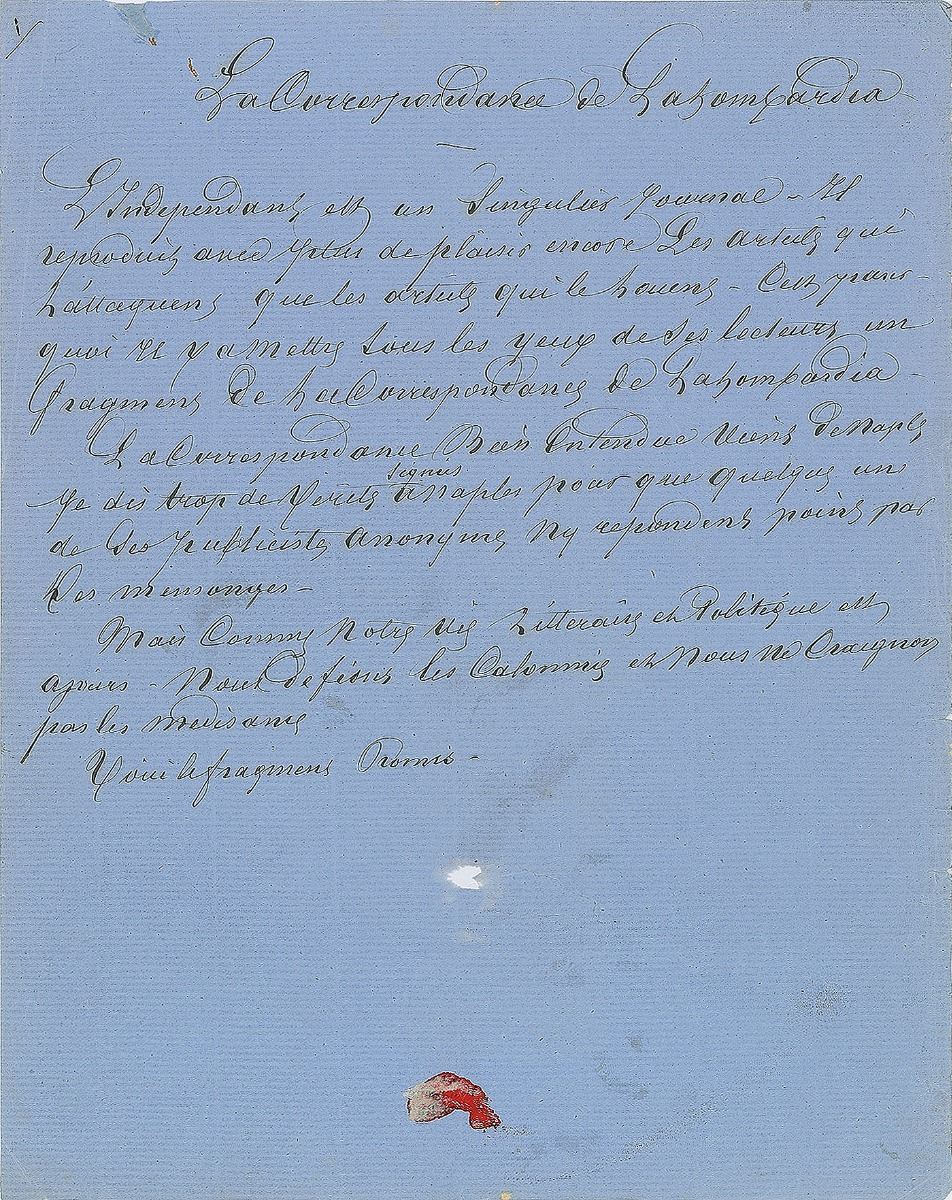 1/
La Correspondance de La Lombardia
L'Independant est un Singulier Journal – Il
reproduit avec plus de plaisir encore Les articles qui
L'attaquent que les articles qui le Louent – C'est pour-
quoi Il va mettre sous les yeux de ses lecteurs un
fragment de La Correspondance de La Lombardia –
La Correspondance Bien Entendue Vient de Naples
Je dis trop de Verités signées à Naples pour que quelques uns
de Ses publicistes anonymes N'y repondent point par
Des mensonges –
Mais Comme Notre Vie Litteraire et Politique est
a jours – Nous defions les Calomnies et Nous Ne Craignons
pas les medisances
Voici le fragment Promis –